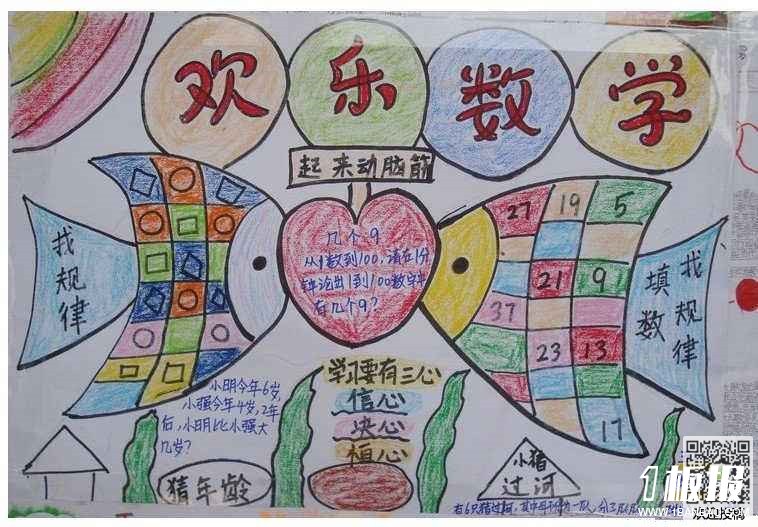 欢乐数学
起来动脑筋
几个9
从1数到100,请在1分
钟论出1到100数字中
有几个9?
找规律
27 19 5
21 9
37
23 13
17
找规律
填数
学习要有三心
信心
决心
恒心
小明今年6岁,
小强今年4岁,2年
后,小明比小强大
几岁?
猜年龄
小猪
过河
有6只猪过河
1板报
WWW.1BANBAO.COM